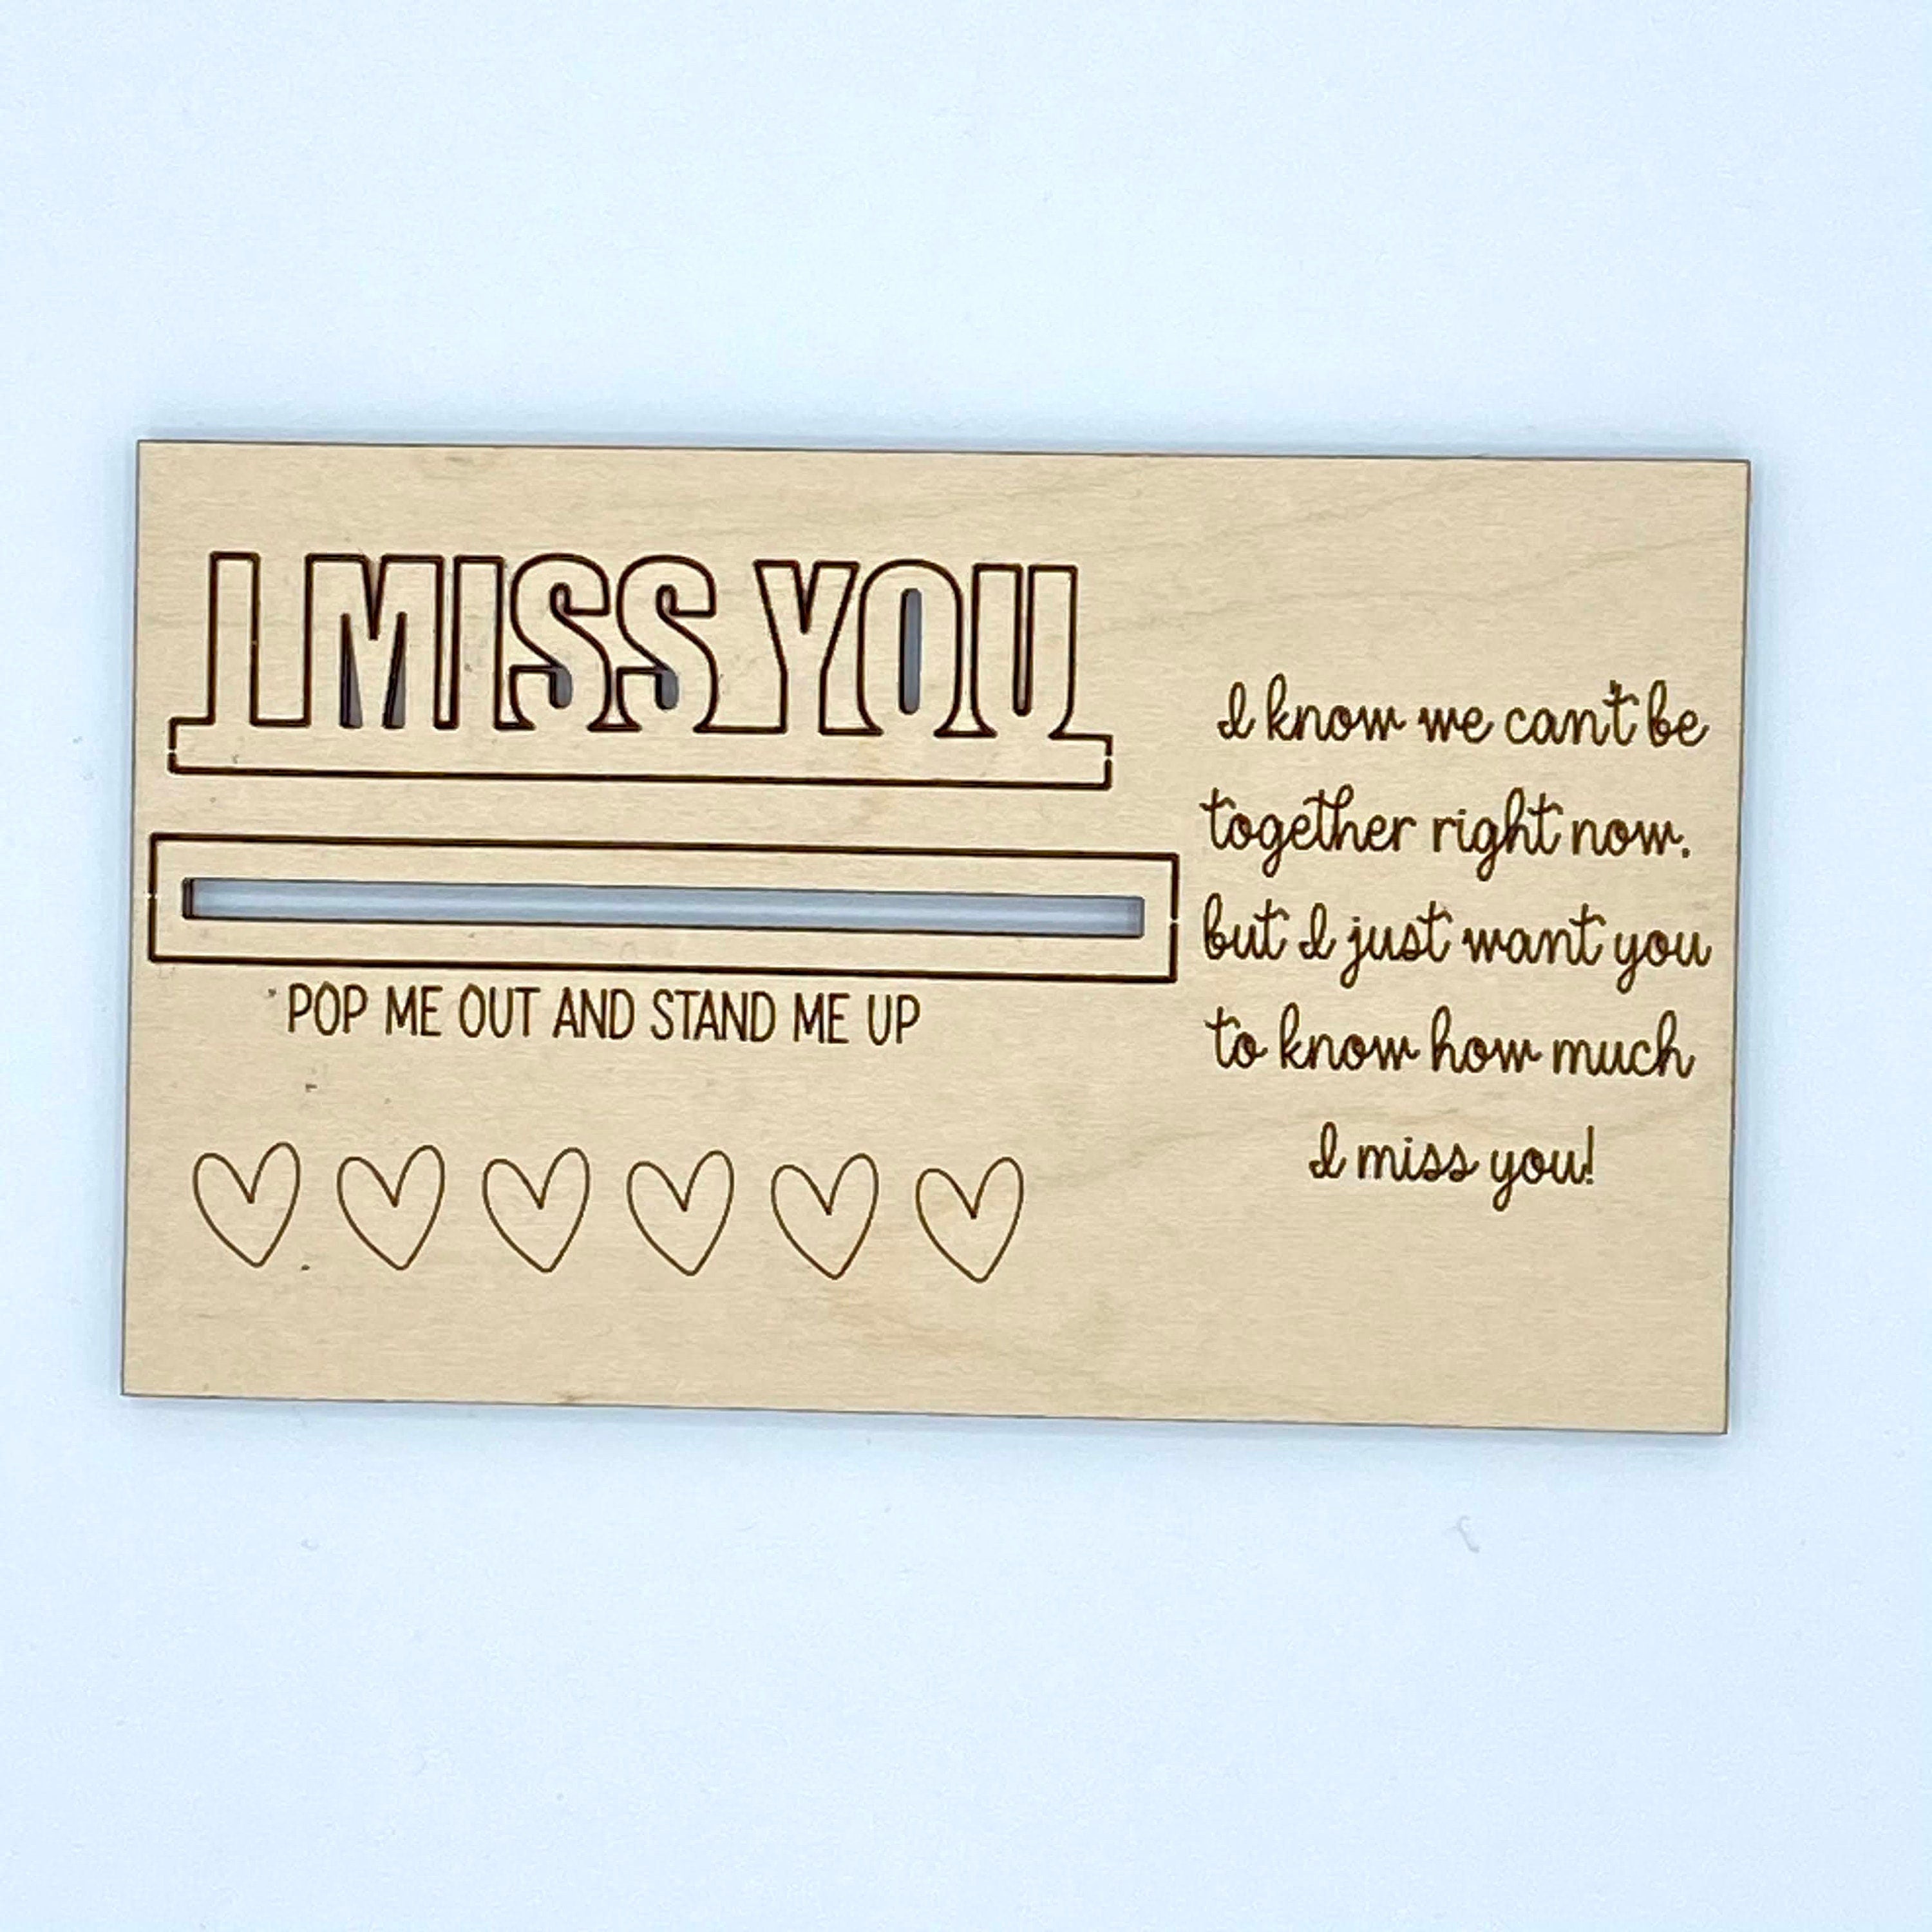 I MISS YOU
POP ME OUT AND STAND ME UP
I know we can't be
together right now.
but I just want you
to know how much
I miss you!